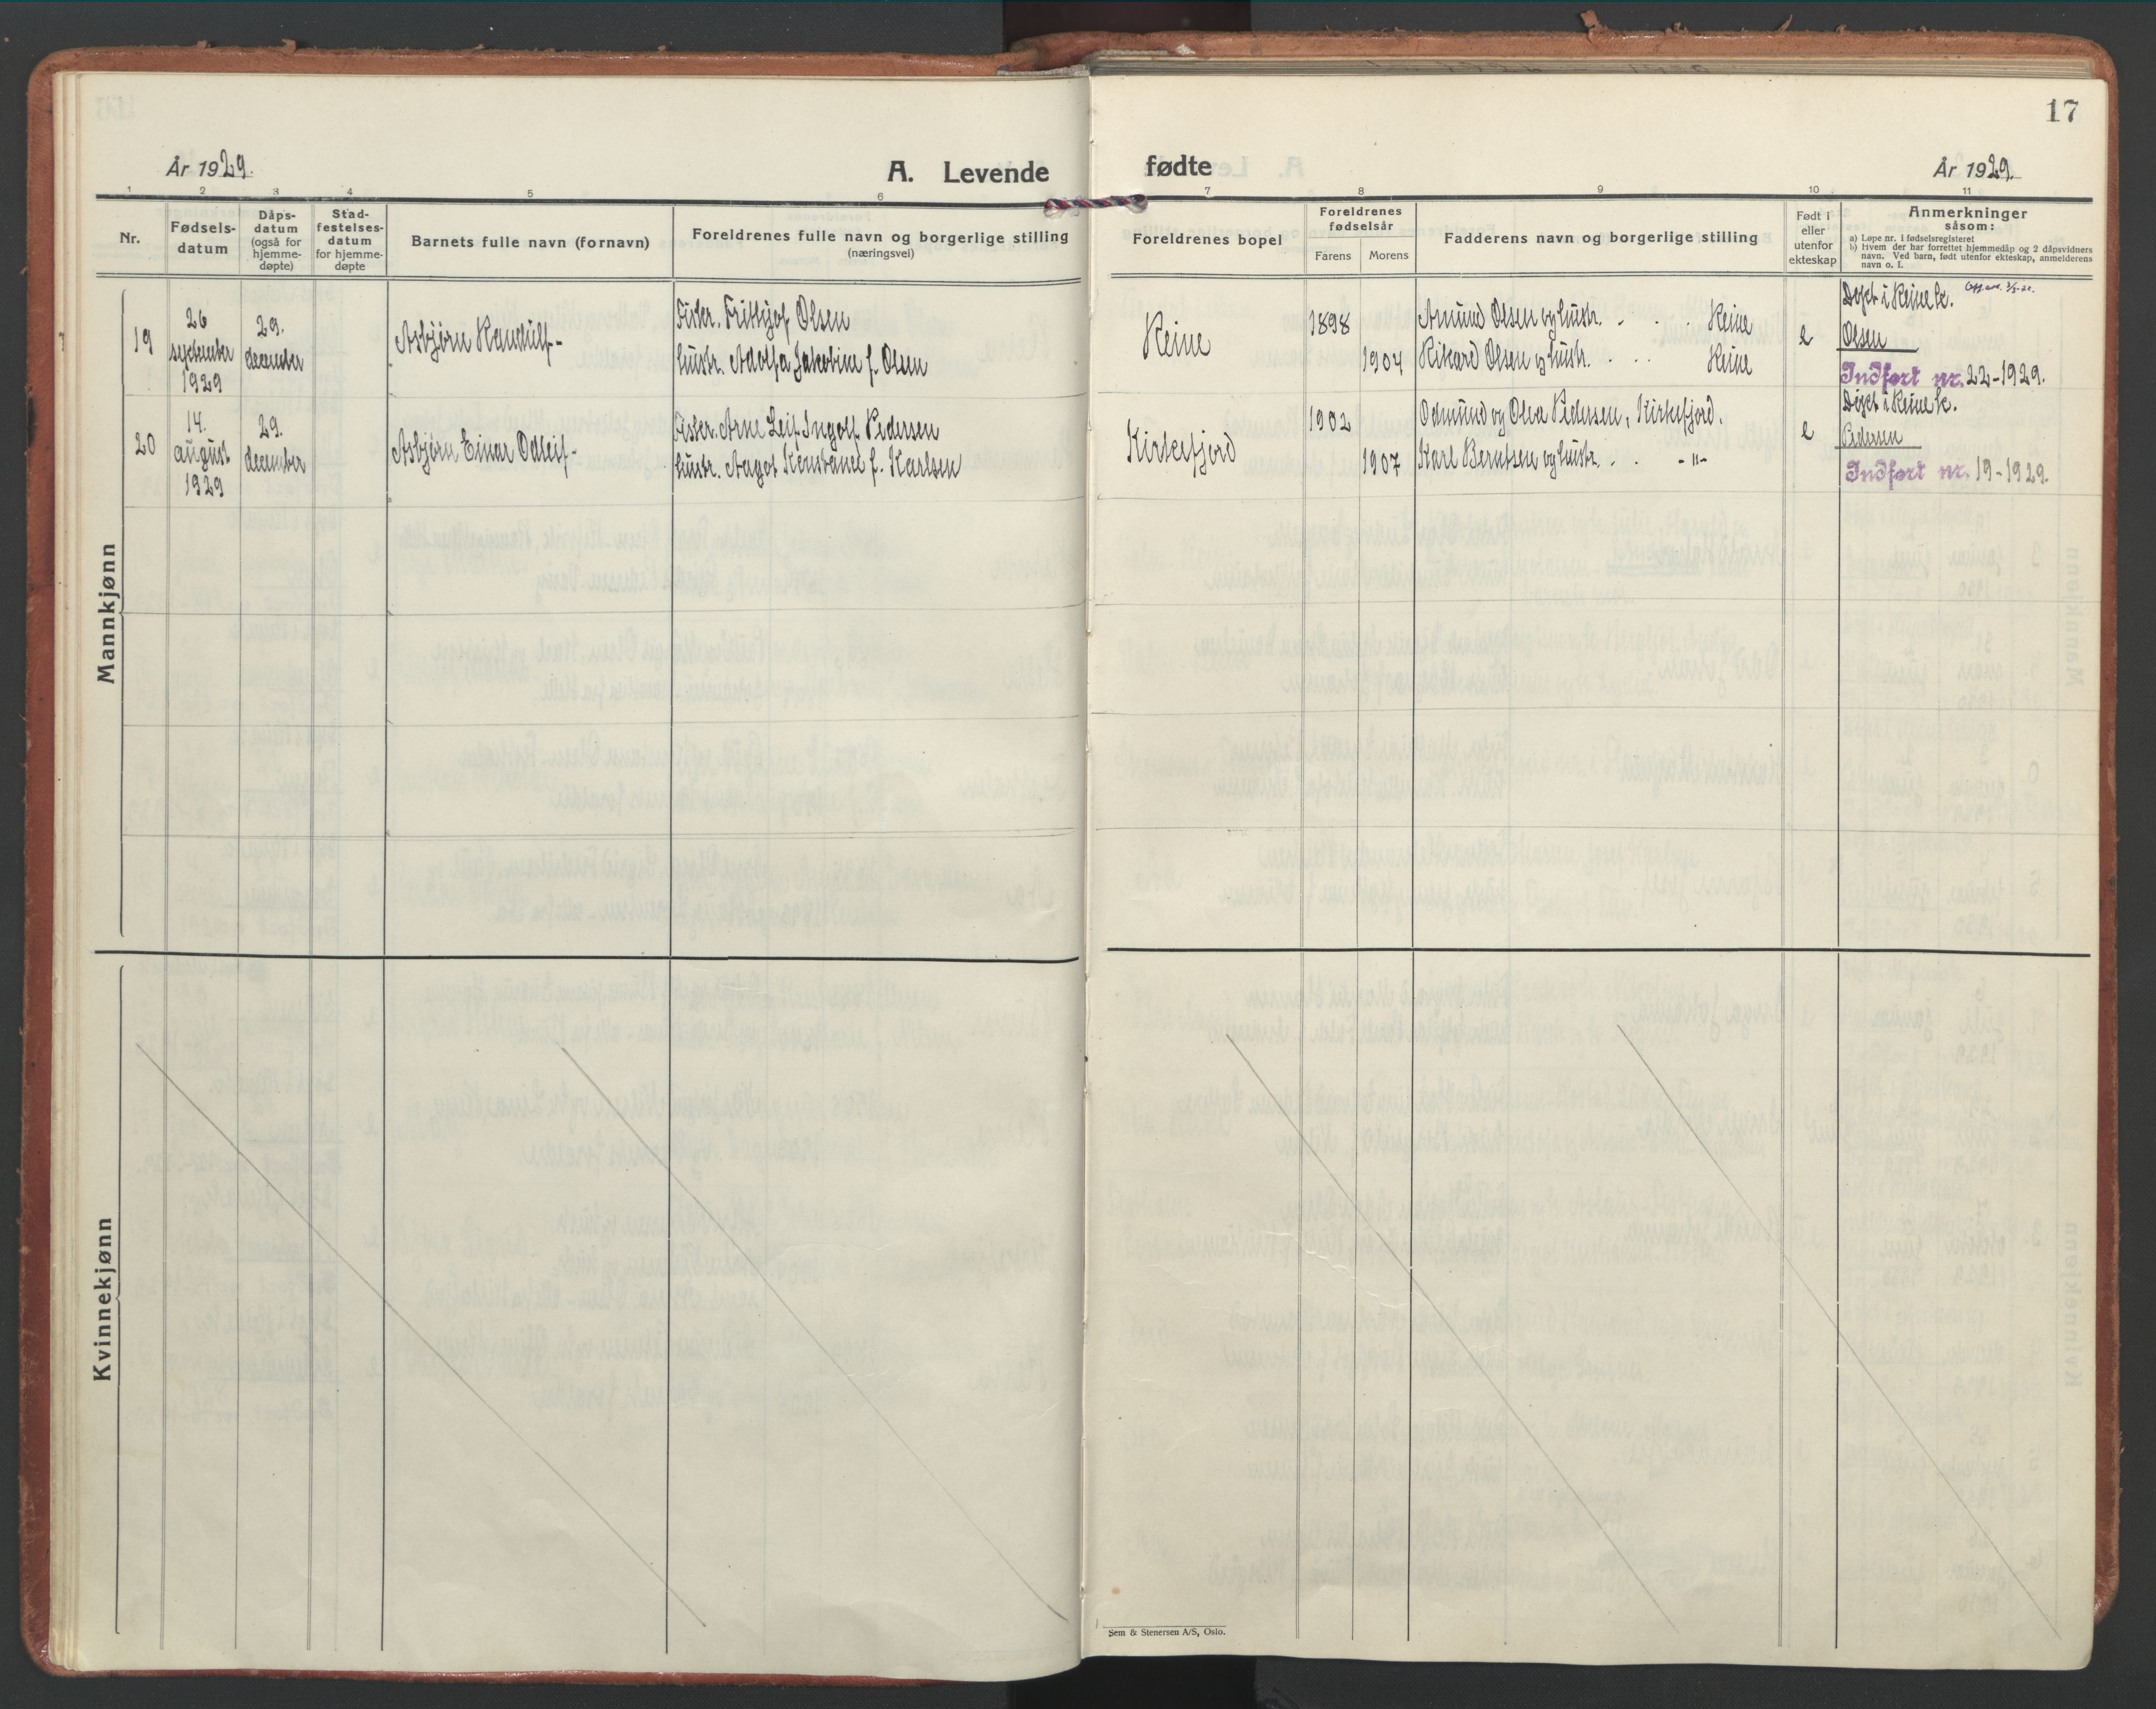 17
År 1929.
A. Levende
fødte
År 1929.
1 2 3 4 5 6 7 8 9 10 11
Nr.
Fødsels-
datum
Dåps-
datum
(også for
hjemme-
døpte)
Stad-
festelses-
datum
for hjemme-
døpte
Barnets fulle navn (fornavn)
Foreldrenes fulle navn og borgerlige stilling
(næringsvei)
Foreldrenes bopel
Foreldrenes
fødselsår
Farens
Morens
Fadderens navn og borgerlige stilling
Født i
eller
utenfor
ekteskap
Anmerkninger
såsom:
a) Løpe nr. i fødselsregisteret
b) Hvem der har forrettet hjemmedåp og 2 dåpsvidners
navn. Ved barn, født utenfor ekteskap, anmelderens
navn o. l.
Mannkjønn
19
26
september
1929
29.
december
Asbjørn Randulf-
Fisker. Frithjof Olsen
hustr. Adolfa Jakobine f. Olsen
Reine
1898
1904
Amund Olsen og hustr. - - Reine
Rikard Olsen og hustr. - - Reine
e
Døpt i Reine k.
Olsen
Indført nr. 22-1929.
20
14.
august
1929
29.
december
Asbjørn Einar Odleif-
Fisker. Arne Leif Ingolf Pedersen
hustr. Aagot Konstanse f. Karlsen
Kirkefjord
1902
1907
Odmund og Olea Pedersen, Kirkefjord.
Karl Berntsen og hustr. - - -"-
e
Døpt i Reine k.
Pedersen
Indført nr. 19-1929.
Kvinnekjønn
Sem & Stenersen A/S, Oslo.